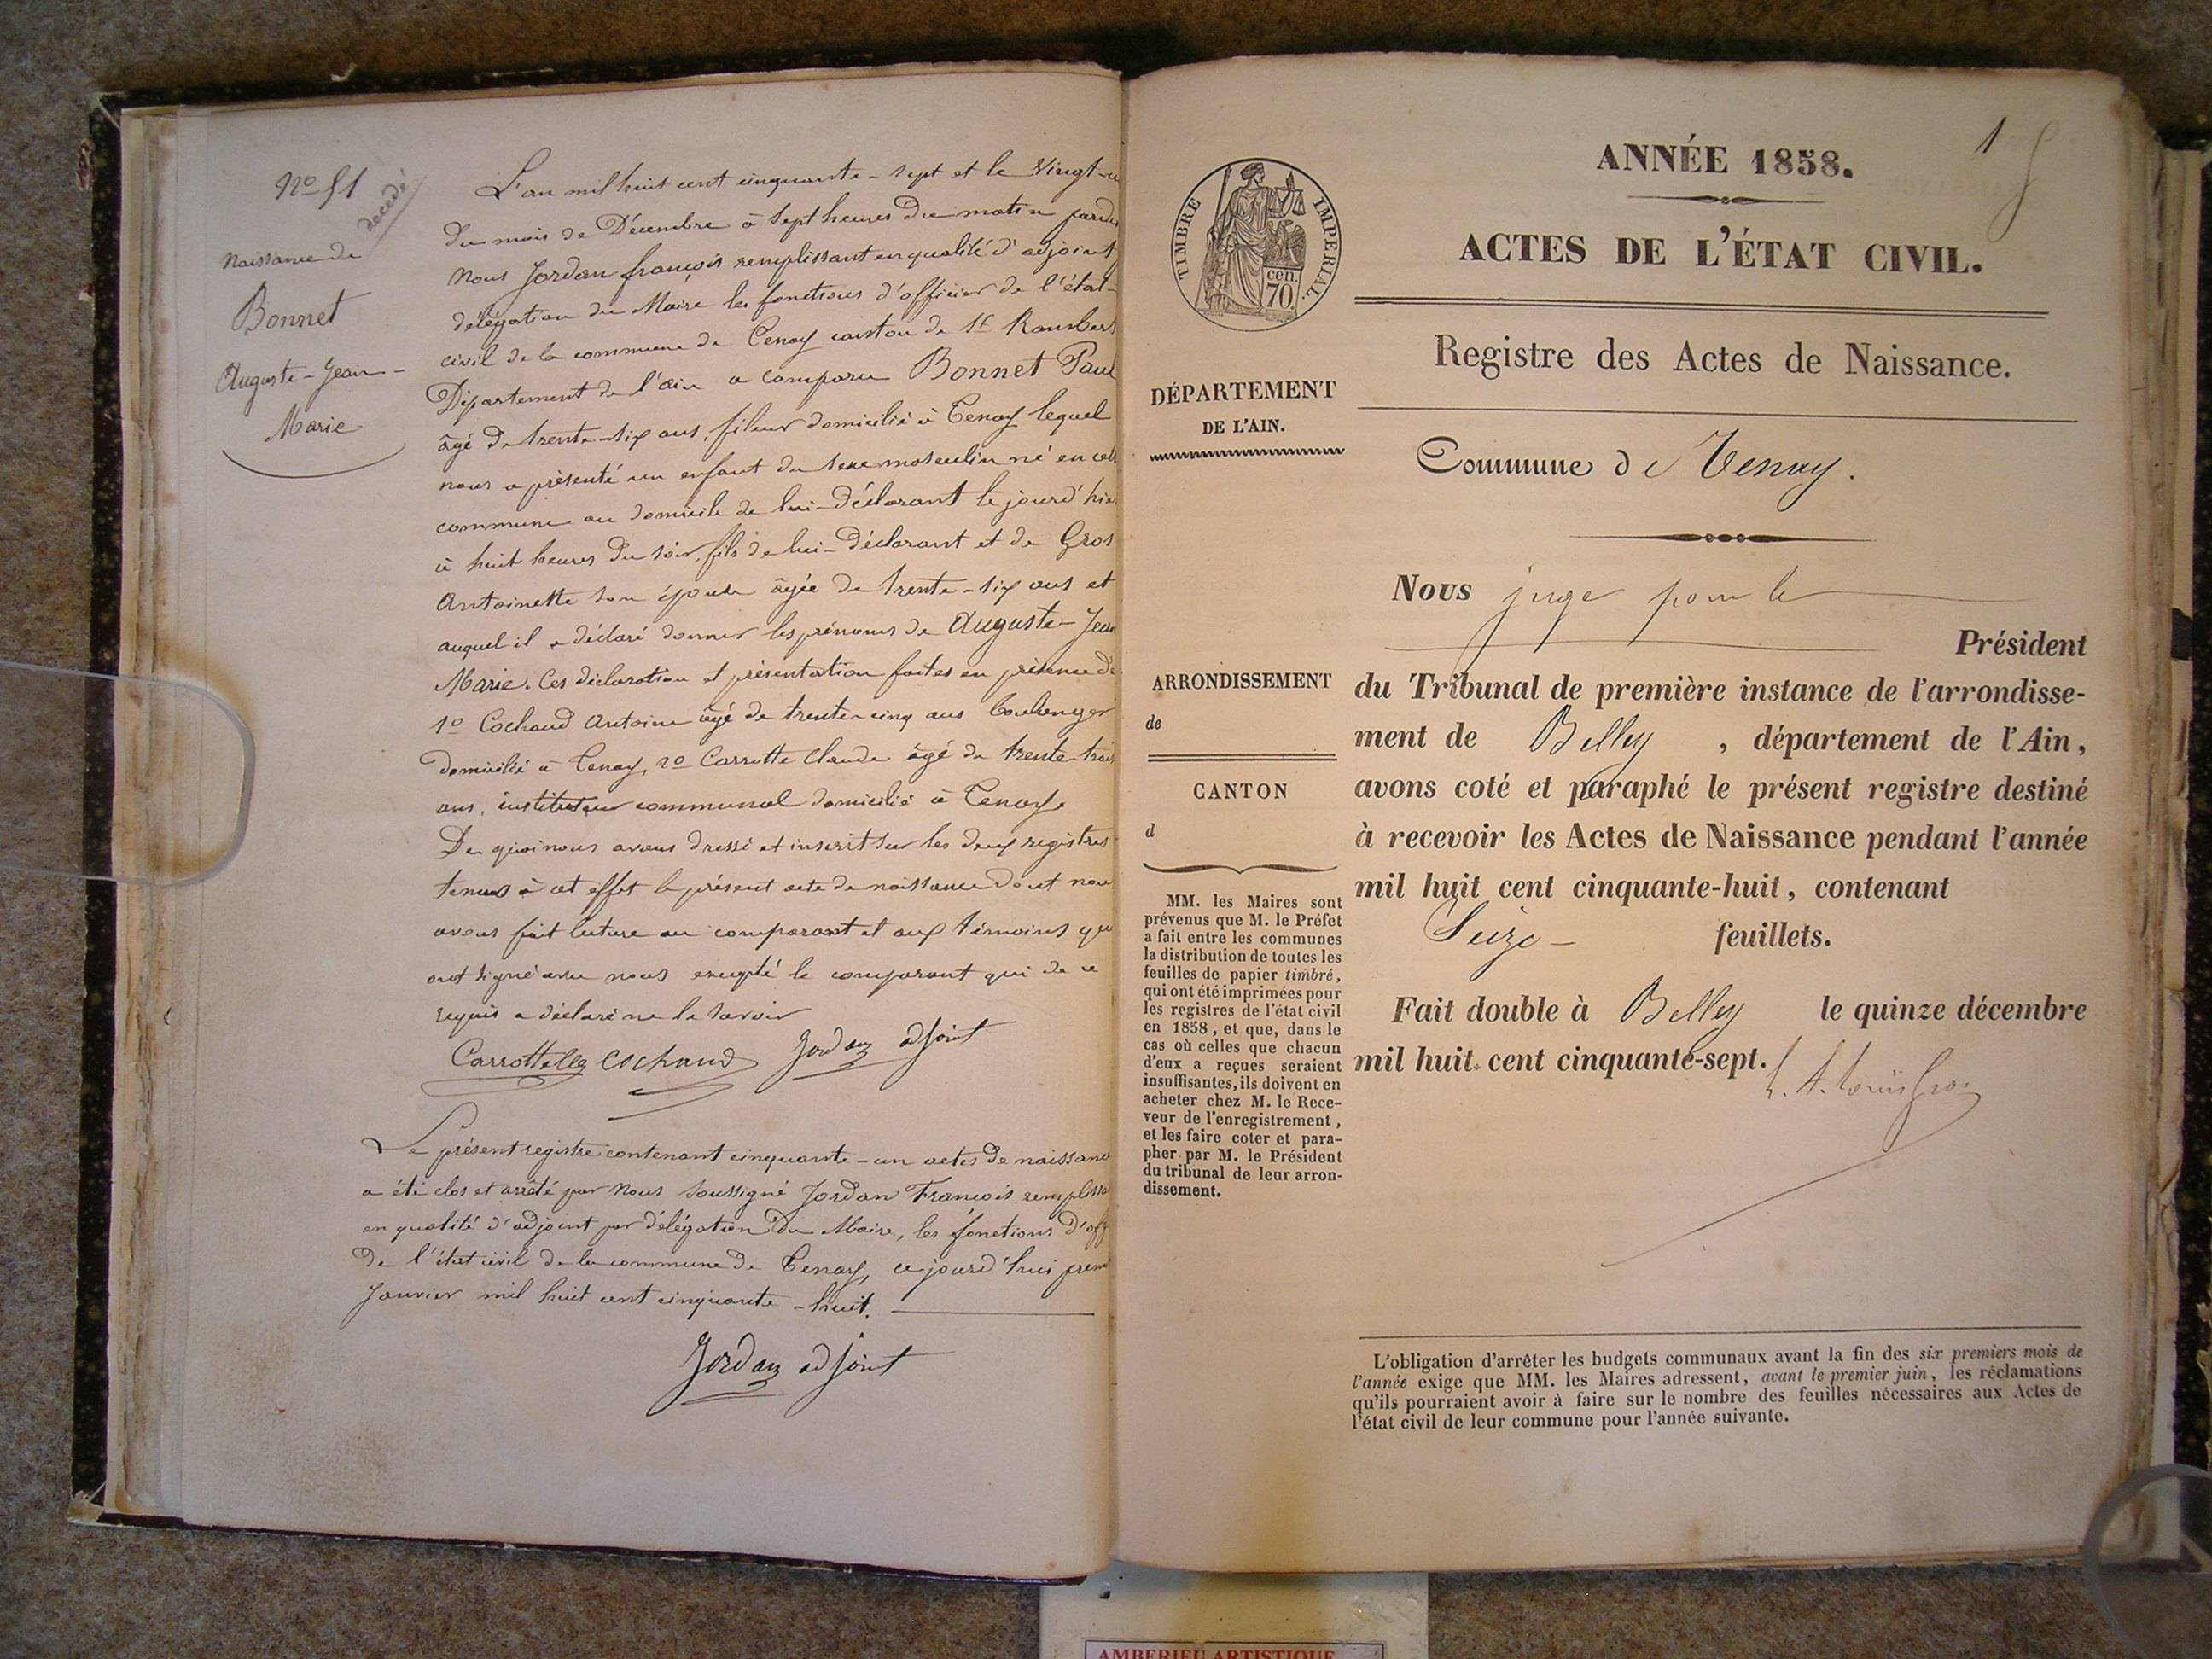 No 51
décédé
Naissance de
Bonnet
Auguste-Jean-
Marie
L'an mil huit cent cinquante-sept et le Vingt-
du mois de Décembre à sept heures du matin
Nous Jordan françois remplissant en qualité d'adjoint
délégation du Maire les fonctions d'officier de l'état-
civil de la commune de Tenay canton de St Rambert
Département de l'ain a comparu Bonnet Paul
âgé de trente-six ans, fileur domicilié à Tenay lequel
nous a présenté un enfant du sexe masculin né en cette
commune au domicile de lui-déclarant le jourd'hier
à huit heures du soir, fils de lui-déclarant et de Gros
Antoinette son épouse âgée de trente-six ans et
auquel il a déclaré donner les prénoms de Auguste-Jean
Marie. Ces déclaration et présentation faites en présence de
1o Cochaud Antoine âgé de trente-cinq ans boulenger
domicilié à Tenay, 2o Carrotte Claude âgé de trente-trois
ans, instituteur communal domicilié à Tenay.
De quoi nous avons dressé et inscrit sur les deux registres
tenus à cet effet le présent acte de naissance dont nous
avons fait lecture au comparant et aux témoins qui
ont signé avec nous excepté le comparant qui de ce
requis a déclaré ne le savoir
Carrotte Cochaud Jordan adjoint
Le présent registre contenant cinquante-un actes de naissance
a été clos et arrêté par Nous soussigné Jordan François
en qualité d'adjoint par délégation du Maire, les fonctions
de l'état civil de la commune de Tenay, ce jourd'hui
Janvier mil huit cent cinquante-huit.
Jordan adjoint
1
ANNÉE 1858.
ACTES DE L'ÉTAT CIVIL.
TIMBRE IMPERIAL
cen.
70
Registre des Actes de Naissance.
DÉPARTEMENT
DE L'AIN.
Commune de Tenay.
Nous juge pour le
Président
du Tribunal de première instance de l'arrondisse-
ment de Belley, département de l'Ain,
avons coté et paraphé le présent registre destiné
à recevoir les Actes de Naissance pendant l'année
mil huit cent cinquante-huit, contenant
Seize - feuillets.
Fait double à Belley le quinze décembre
mil huit cent cinquante-sept.
ARRONDISSEMENT
de
CANTON
d
MM. les Maires sont
prévenus que M. le Préfet
a fait entre les communes
la distribution de toutes les
feuilles de papier timbré,
qui ont été imprimées pour
les registres de l'état civil
en 1858, et que, dans le
cas où celles que chacun
d'eux a reçues seraient
insuffisantes, ils doivent en
acheter chez M. le Rece-
veur de l'enregistrement,
et les faire coter et para-
pher par M. le Président
du tribunal de leur arron-
dissement.
L'obligation d'arrêter les budgets communaux avant la fin des six premiers mois de
l'année exige que MM. les Maires adressent, avant le premier juin, les réclamations
qu'ils pourraient avoir à faire sur le nombre des feuilles nécessaires aux Actes de
l'état civil de leur commune pour l'année suivante.
AMBERIEU ARTISTIQUE